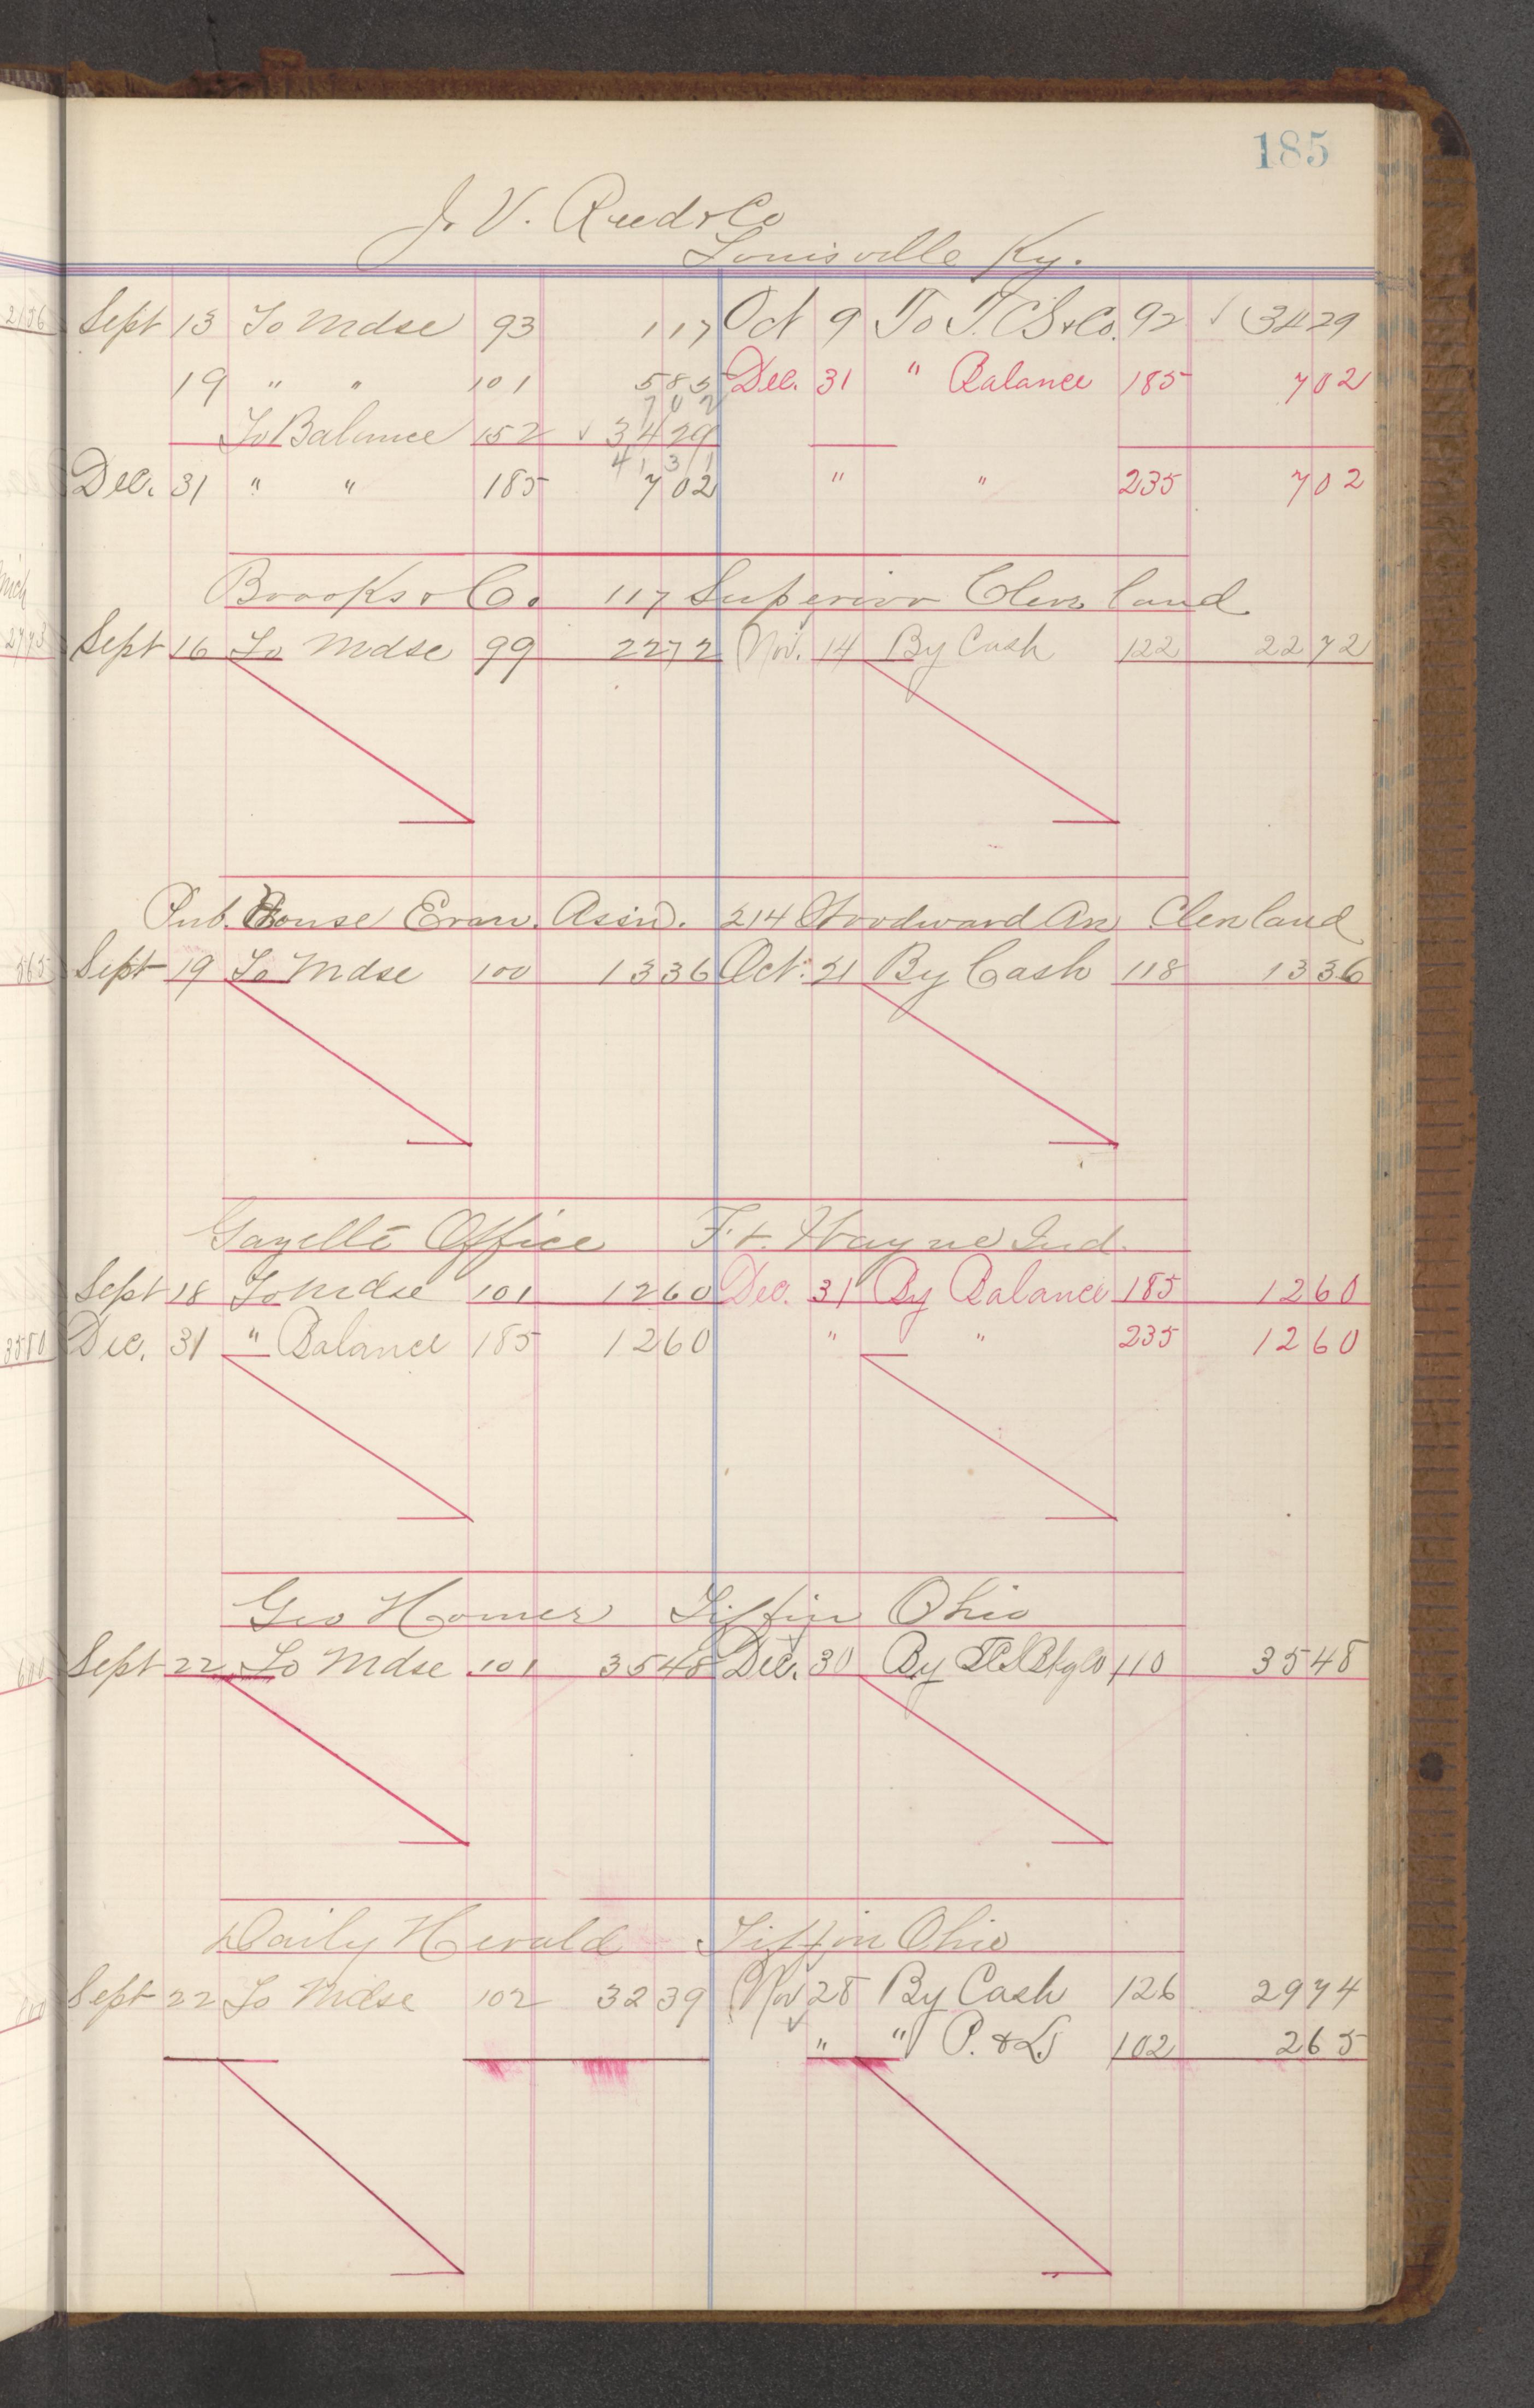 185
J. V. Reed & Co
Louisville Ky.
Sept 13 To Mdse 93 1 17 Oct 9 To T. C. S. & Co. 92 √ 34 29
19 " " 101 5 85 Dec. 31 " Balance 185 7 02
7 02
To Balance 152 √ 34 29
41 31
Dec. 31 " " 185 7 02 " " 235 7 02
Brooks & Co. 117 Superior Cleveland
Sept 16 To Mdse 99 22 72 Nov. 14 By Cash 122 22 72
Pub. House Evan. Assn. 214 Woodward Av Cleveland
Sept 19 To Mdse 100 13 36 Oct. 21 By Cash 118 13 36
Gazette Office Ft. Wayne Ind.
Sept 18 To Mdse 101 12 60 Dec. 31 By Balance 185 12 60
Dec. 31 " Balance 185 12 60 " " 235 12 60
Geo Homer Tiffin Ohio
Sept 22 To Mdse 101 35 48 Dec. 30 By 110 35 48
Daily Herald Tiffin Ohio
Sept 22 To Mdse 102 32 39 Nov 28 By Cash 126 29 74
√ " " P. & L. 102 2 65